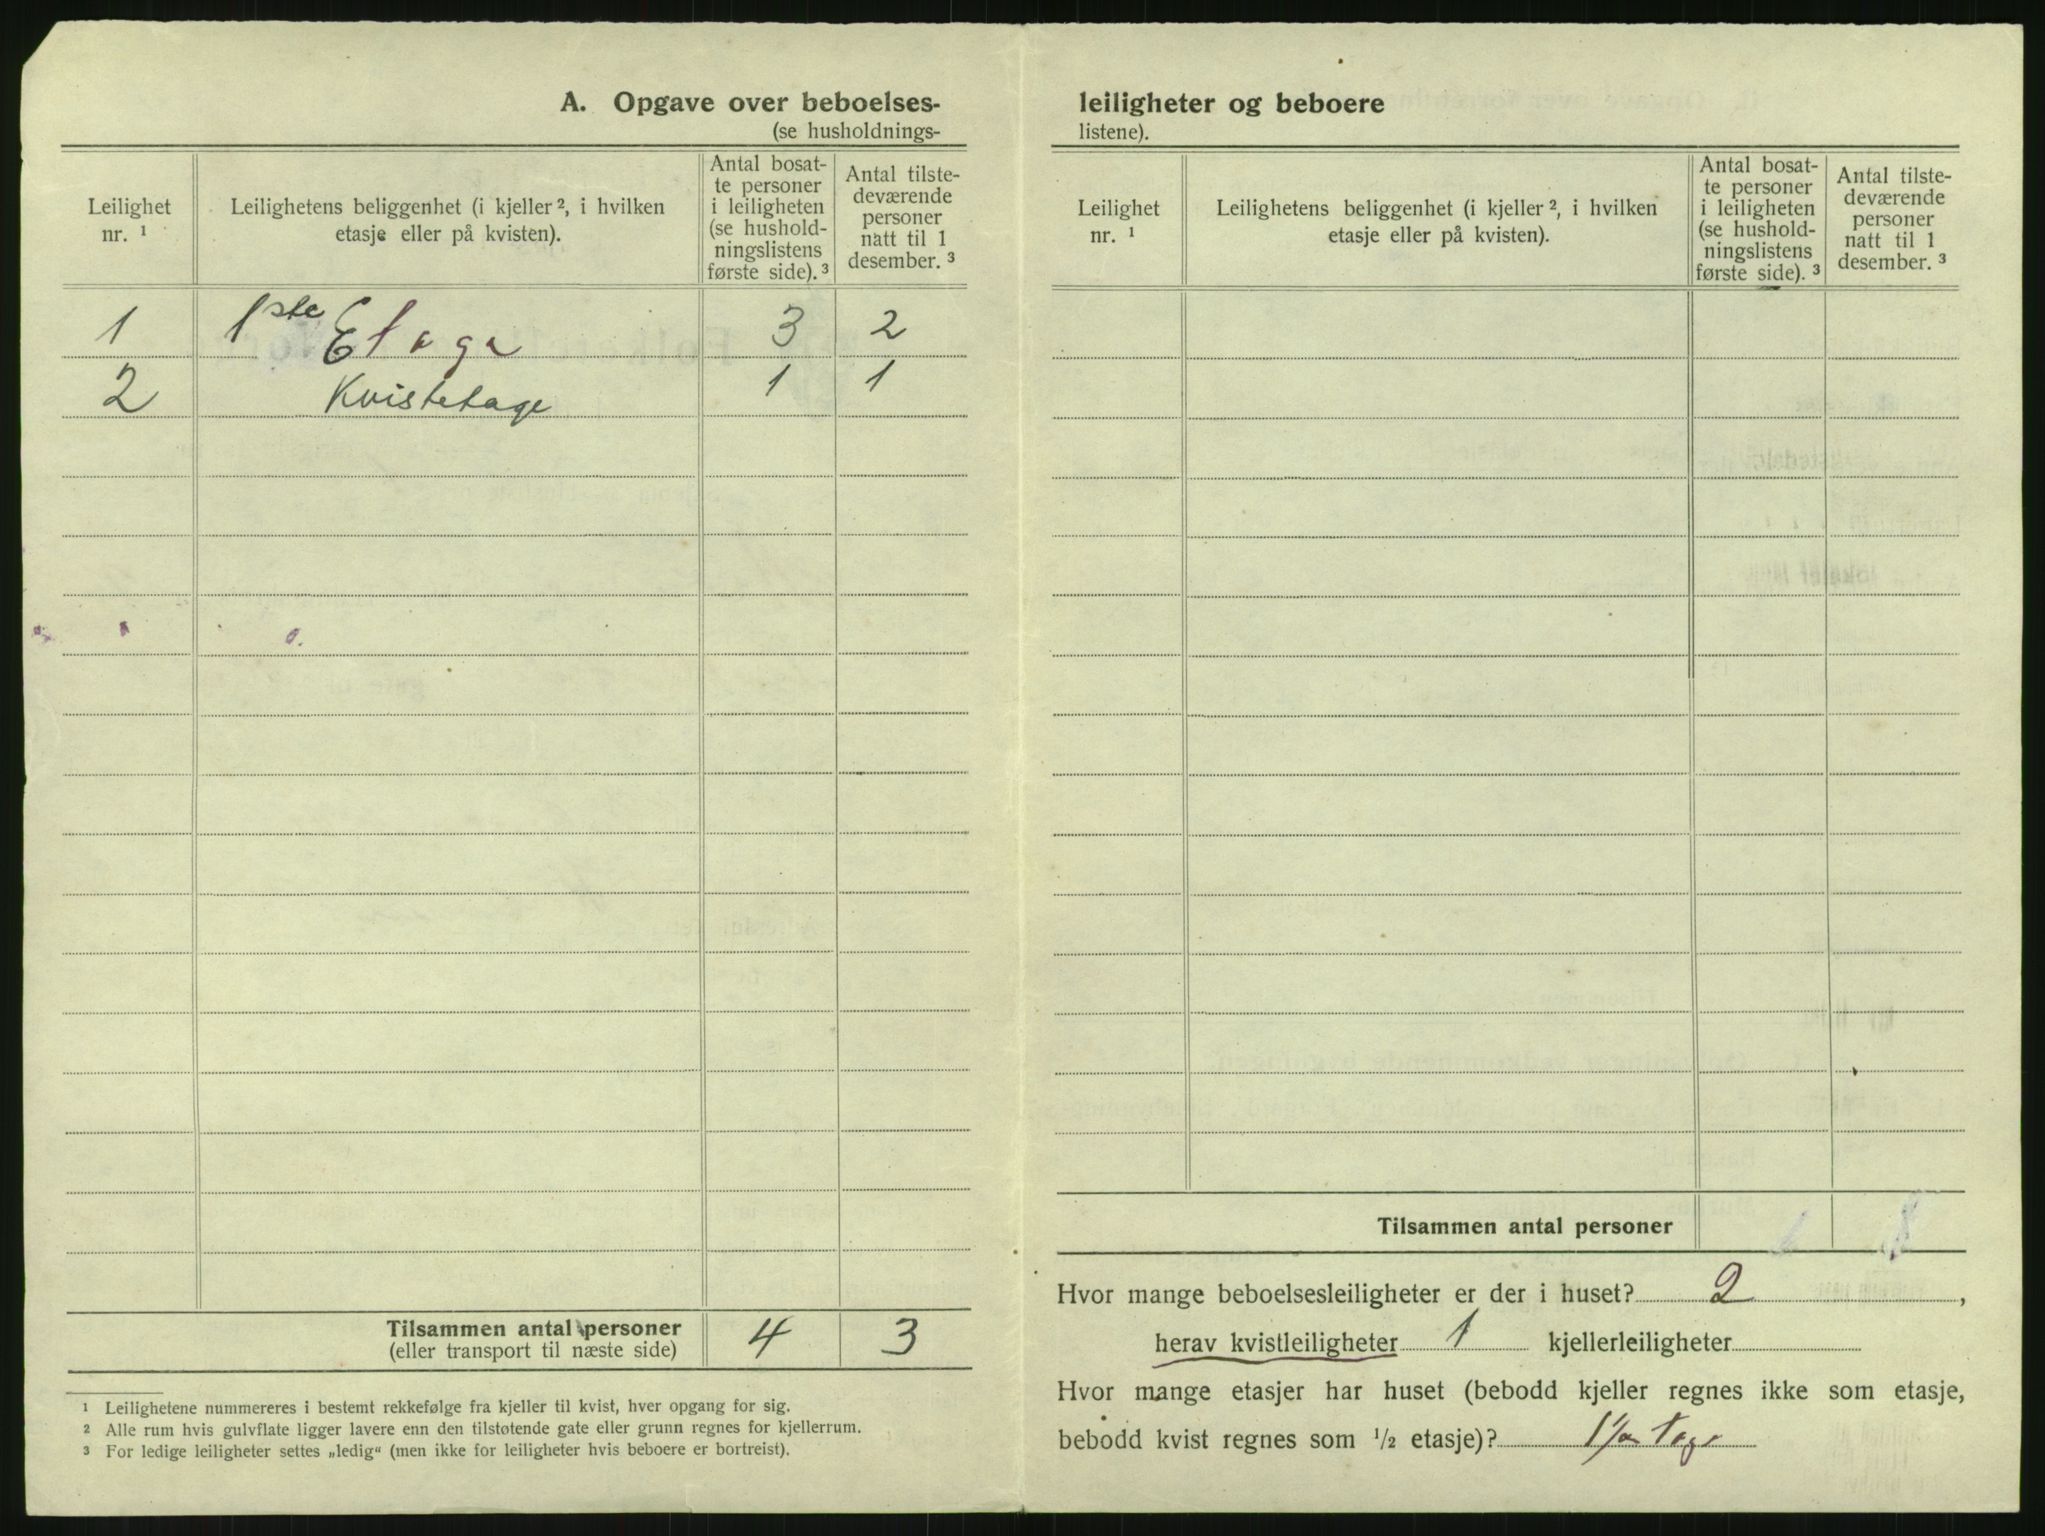 A. Opgave over beboelses-
(se husholdnings-
Leilighet nr. 1
Leilighetens beliggenhet (i kjeller 2, i hvilken etasje eller på kvisten).
Antal bosat-
te personer
i leiligheten
(se hushold-
ningslistens
første side). 3
Antal tilste-
deværende
personer
natt til 1
desember. 3
1 1ste Etage 3 2
2 Kvistetage 1 1
Tilsammen antal personer 4 3
(eller transport til næste side)
1 Leilighetene nummereres i bestemt rekkefølge fra kjeller til kvist, hver opgang for sig.
2 Alle rum hvis gulvflate ligger lavere enn den tilstøtende gate eller grunn regnes for kjellerrum.
3 For ledige leiligheter settes „ledig“ (men ikke for leiligheter hvis beboere er bortreist).
leiligheter og beboere
listene).
Leilighet nr. 1
Leilighetens beliggenhet (i kjeller 2, i hvilken etasje eller på kvisten).
Antal bosat-
te personer
i leiligheten
(se hushold-
ningslistens
første side). 3
Antal tilste-
deværende
personer
natt til 1
desember. 3
Tilsammen antal personer
Hvor mange beboelsesleiligheter er der i huset? 2,
herav kvistleiligheter 1 kjellerleiligheter
Hvor mange etasjer har huset (bebodd kjeller regnes ikke som etasje,
bebodd kvist regnes som 1/2 etasje)?